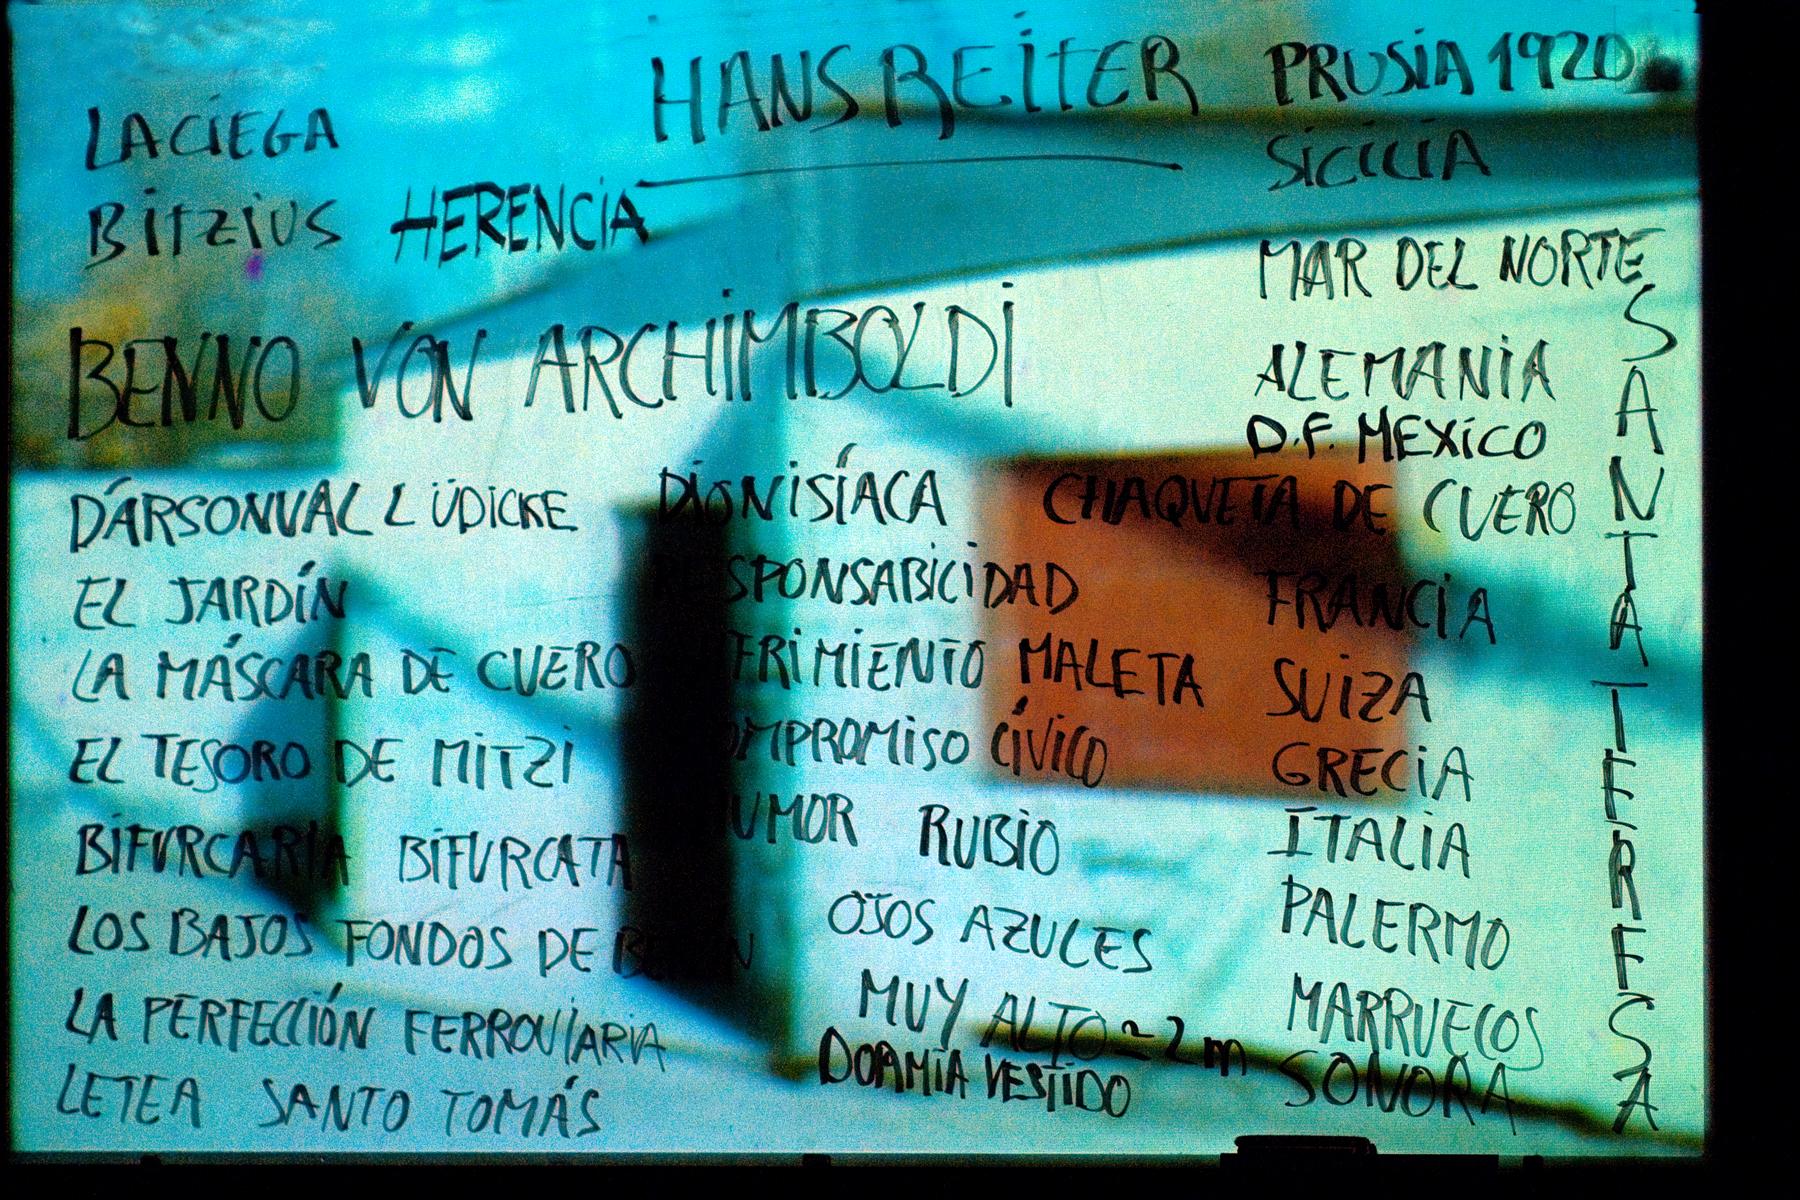 HANS REITER PRUSIA 1920
LA CIEGA
SICILIA
BITZIUS HERENCIA
MAR DEL NORTE
BENNO VON ARCHIMBOLDI
ALEMANIA
D.F. MEXICO
D'ARSONVAL LÜDICKE DIONISÍACA CHAQUETA DE CUERO
EL JARDÍN RESPONSABICIDAD FRANCIA
LA MÁSCARA DE CUERO FRIMIENTO MALETA SUIZA
EL TESORO DE MITZI OMPROMISO CÍVICO GRECIA
BIFURCARIA BIFURCATA UMOR RUBIO ITALIA
LOS BAJOS FONDOS DE OJOS AZULES PALERMO
LA PERFECCIÓN FERROVIARIA MUY ALTO ≃ 2 m MARRUECOS
DORMÍA VESTIDO SONORA
LETEA SANTO TOMÁS
SANTA TERESA